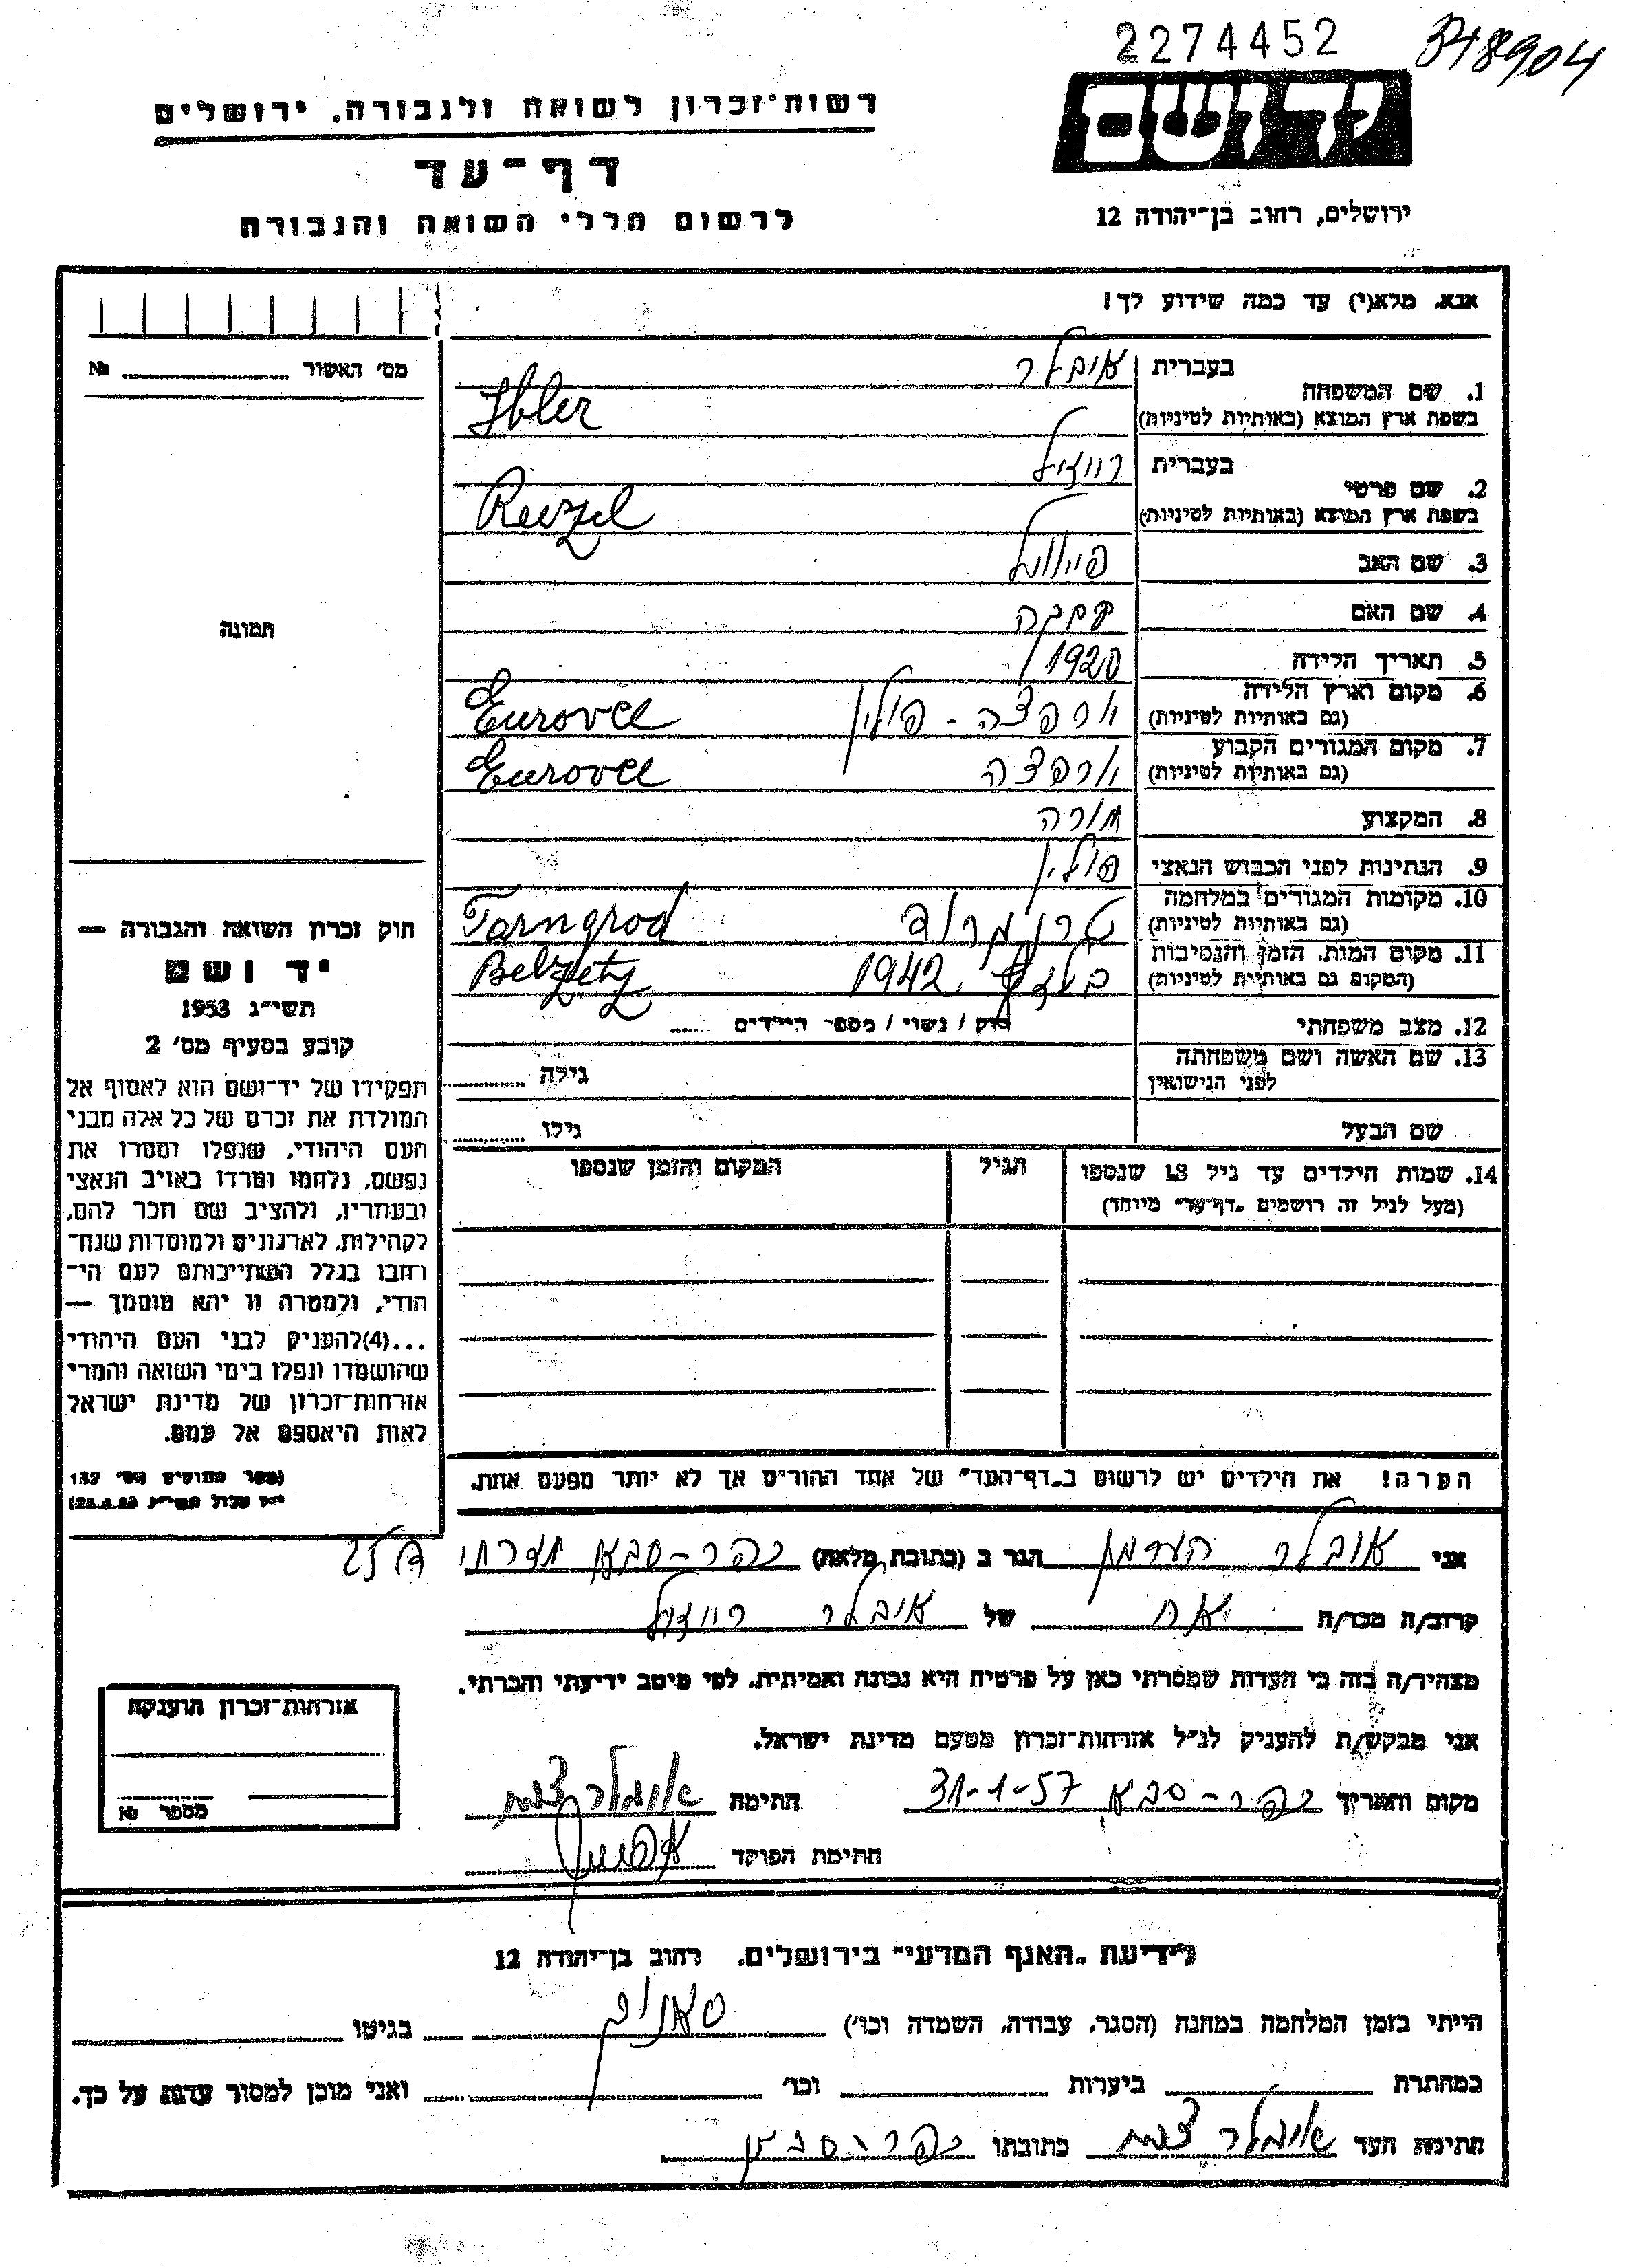 2274452
348904
רשות־זכרון לשואה ולגבורה, ירושלים
דף־עד
לרשום חללי השואה והגבורה
יד ושם
ירושלים, רחוב בן־יהודה 12
אנא, מלא(י) עד כמה שידוע לך!
מס׳ האשור № 
1. שם המשפחה בעברית אובלר
בשפת ארץ המוצא (באותיות לטיניות) Ibler
2. שם פרטי בעברית רייזיל
בשפת ארץ המוצא (באותיות לטיניות) Reizel
3. שם האב פייוול
4. שם האם
5. תאריך הלידה 1920
6. מקום וארץ הלידה - פולין
(גם באותיות לטיניות) Eurovee
7. מקום המגורים הקבוע
(גם באותיות לטיניות) Eurovee
8. המקצוע מורה
9. הנתינות לפני הכבוש הנאצי פולין
10. מקומות המגורים במלחמה
(גם באותיות לטיניות) Tarngrod
11. מקום המות, הזמן והנסיבות 1942
(המקום גם באותיות לטיניות) Belzetz
12. מצב משפחתי רוק / נשוי / מספר הילדים
13. שם האשה ושם משפחתה
לפני הנישואין גילה
שם הבעל גילו
14. שמות הילדים עד גיל 18 שנספו הגיל המקום והזמן שנספו
(מעל לגיל זה רושמים „דף־עד״ מיוחד)
הערה! את הילדים יש לרשום ב„דף־העד״ של אחד ההורים אך לא יותר מפעם אחת.
תמונה
חוק זכרון השואה והגבורה —
יד ושם
תשי״ג 1953
קובע בסעיף מס׳ 2
תפקידו של יד־ושם הוא לאסוף אל
המולדת את זכרם של כל אלה מבני
העם היהודי, שנפלו ומסרו את
נפשם, נלחמו ומרדו באויב הנאצי
ובעוזריו, ולהציב שם וזכר להם,
לקהילות, לארגונים ולמוסדות שנח־
רחבו בגלל השתייכותם לעם הי־
הודי, ולמטרה זו יהא מוסמך —
...(4) להעניק לבני העם היהודי
שהושמדו ונפלו בימי השואה והמרי
אזרחות־זכרון של מדינת ישראל
לאות היאספם אל עמם.
(ספר החוקים מס׳ 132
י״ז אלול תשי״ג 28.8.53)
אני אובלר הערמן הגר ב (כתובת מלאה) כפר-סבא
קרוב/ה מכר/ה אח של אובלר רייזיל
מצהיר/ה בזה כי העדות שמסרתי כאן על פרטיה היא נכונה ואמיתית, לפי מיטב ידיעתי והכרתי.
אני מבקש/ת להעניק לנ״ל אזרחות־זכרון מטעם מדינת ישראל.
מקום ותאריך כפר-סבא 31-1-57 חתימה
חתימת הפוקד
אזרחות־זכרון הוענקה
מספר №
לידיעת „האגף המדעי״ בירושלים, רחוב בן־יהודה 12
הייתי בזמן המלחמה במחנה (הסגר, עבודה, השמדה וכו׳) בגיטו
במחתרת ביערות וכו׳ ואני מוכן למסור עדות על כך.
חתימת העד כתובתו כפר-סבא